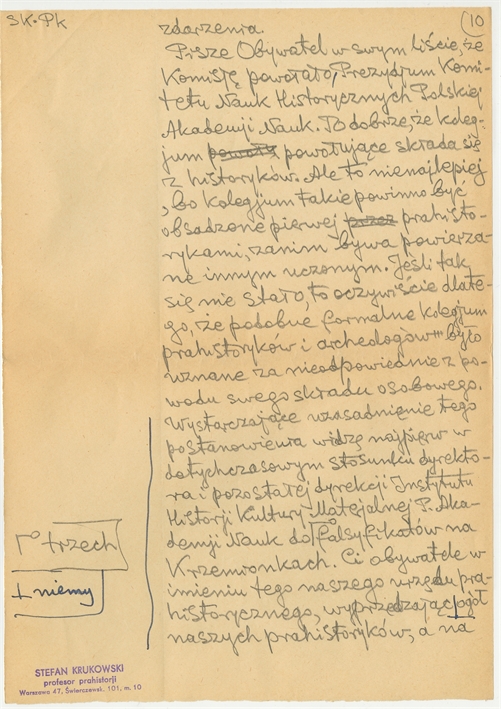 SK.Pk
10
zdarzenia.
Pisze Obywatel w swym liście, że
Komisję powołało, Prezydjum Komi-
tetu Nauk Historycznych Polskiej
Akademji Nauk. To dobrze, że koleg-
jum powoły powołujące składa się
z historyków. Ale to nienajlepiej
, bo kolegjum takie powinno być
obsadzone pierwej przez prahisto-
rykami, zanim bywa powierza-
ne innym uczonym. Jeśli tak
się nie stało, to oczywiście dlate-
go, że podobne formalne kolegjum
prahistoryków i archeologów było
uznane za nieodpowiednie z po-
wodu swego składu osobowego.
Wystarczające uzasadnienie tego
postanowienia widzę najpierw w
dotychczasowym stosunku dyrekto-
ra i pozostałej dyrekcji Instytutu
Historji Kultury Materjalnej P. Aka-
demji Nauk do falsyfikatów na
Krzemionkach. Ci obywatele w
imieniu tego naszego urzędu pra-
historycznego, wyprzedzając ogół
naszych prahistoryków, a na
trzech
niemy
STEFAN KRUKOWSKI
profesor prahistorji
Warszawa 47, Świerczewsk. 101, m. 10